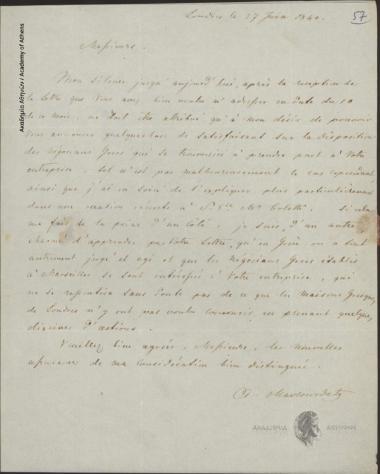 57
Londres le 27 Juin 1840.
Messieurs.
Mon silence jusqu'aujourd'hui, après la réception de
la lettre que Vous avez bien voulu m'adresser en date du 10
de ce mois, ne doit être attribué qu'à mon désir de pouvoir
Vous annoncer quelque chose de satisfaisant sur la disposition
des négocians Grecs qui se trouvent à prendre part à Votre
entreprise. tel n'est pas malheureusement le cas
ainsi que j'ai eu soin de l'expliquer plus particulièrement
dans une récente à S. E. Mr Coletti. Si cela
me fait de la peine d'un côté, je suis, d'un autre,
charmé d'apprendre par Votre Lettre, qu'en Grèce on a tout
autrement jugé et agi et que les négocians Grecs établis
à Marseilles se sont intéressés à Votre entreprise, qui
ne se ressentira sans doute pas de ce que les maisons Grecques
de Londres n'y ont pas voulu concourir, en prenant quelques
dizaines d'actions.
Veuillez bien agréer, Messieurs, les nouvelles
assurances de ma considération bien distinguée.
Maurocordato
Ακαδημία Αθηνών / Academy of Athens
ΑΚΑΔΗΜΙΑ ΑΘΗΝΩΝ